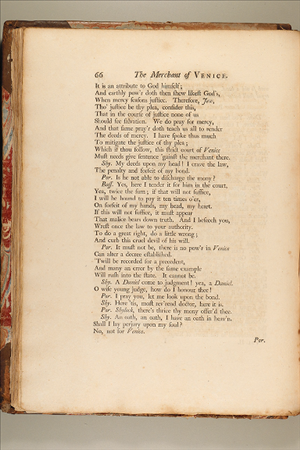 66 The Merchant of VENICE.
It is an attribute to God himself;
And earthly pow'r doth then shew likest God's,
When mercy seasons justice. Therefore, Jew,
Tho' justice be thy plea, consider this,
That in the course of justice none of us
Should see salvation. We do pray for mercy,
And that same pray'r doth teach us all to render
The deeds of mercy. I have spoke thus much
To mitigate the justice of thy plea;
Which if thou follow, this strict court of Venice
Must needs give sentence 'gainst the merchant there.
Shy. My deeds upon my head! I crave the law,
The penalty and forfeit of my bond.
Por. Is he not able to discharge the mony?
Bass. Yes, here I tender it for him in the court,
Yea, twice the sum; if that will not suffice,
I will be bound to pay it ten times o'er,
On forfeit of my hands, my head, my heart.
If this will not suffice, it must appear
That malice bears down truth. And I beseech you,
Wrest once the law to your authority.
To do a great right, do a little wrong;
And curb this cruel devil of his will.
Por. It must not be, there is no pow'r in Venice
Can alter a decree established.
'Twill be recorded for a precedent,
And many an error by the same example
Will rush into the state. It cannot be.
Shy. A Daniel come to judgment! yea, a Daniel.
O wise young judge, how do I honour thee!
Por. I pray you, let me look upon the bond.
Shy. Here 'tis, most rev'rend doctor, here it is.
Por. Shylock, there's thrice thy mony offer'd thee.
Shy. An oath, an oath, I have an oath in heav'n.
Shall I lay perjury upon my soul?
No, not for Venice.
Por.